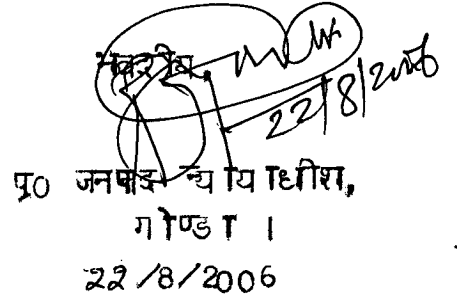 भवदीय,
22/8/2006
प्र0 जनपद न्यायाधीश,
गोण्डा ।
22/8/2006